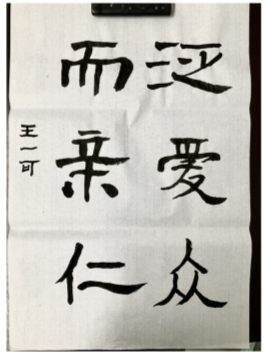 泛爱众
而亲仁
王一可